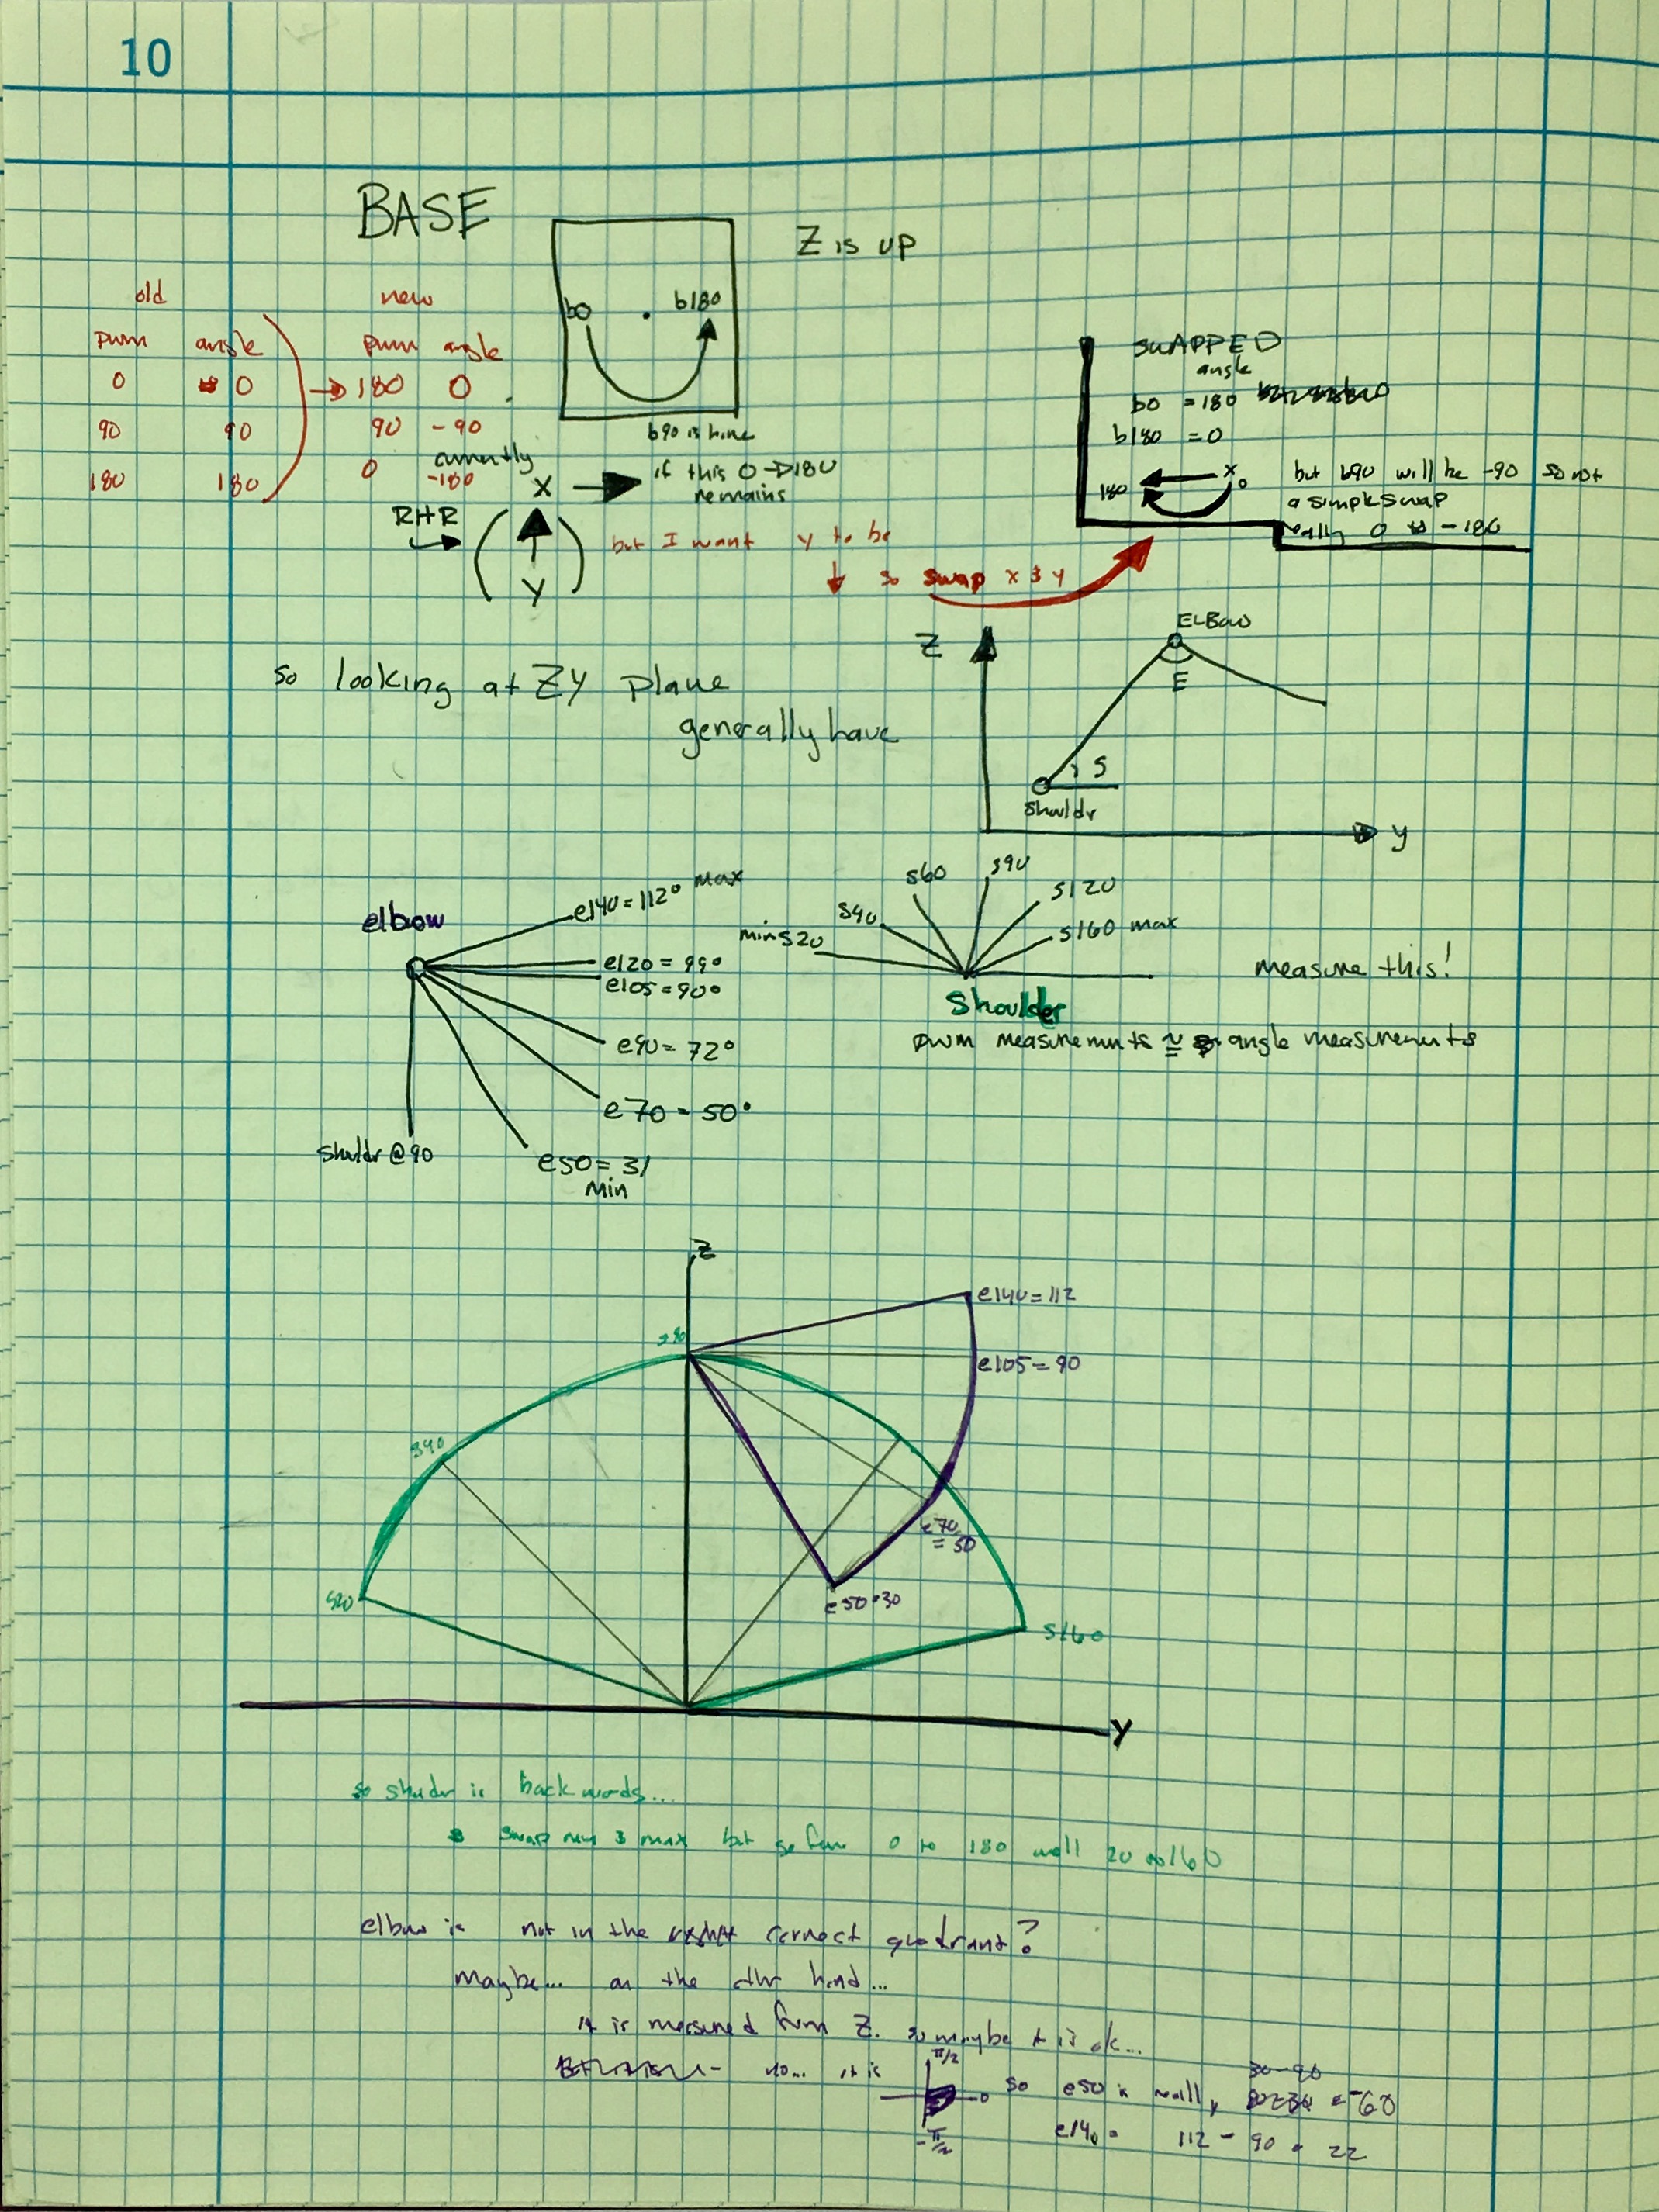 10
BASE
Z is up
old
new
pwm angle
pwm angle
0 0
180 0
90 90
90 -90
180 180
0 -180
currently
b0
b180
b90 is here
X
if this 0→180
remains
RHR
Y
but I want y to be
↓ so swap x & y
SWAPPED
angle
b0 = 180
b180 = 0
x
0
180
but b90 will be -90 so not
a simple swap
really 0 → -180
so looking at ZY plane
generally have
Z
ELBOW
E
S
Shouldr
y
elbow
e140 = 112° max
e120 = 99°
e105 = 90°
e90 = 72°
e70 = 50°
e50 = 31
min
Shouldr @ 90
min s20
s40
s60
s90
s120
s160 max
measure this!
Shoulder
pwm measurements ≅ angle measurements
Z
s90
e140 = 112
e105 = 90
s40
e70
= 50
e50 = 30
s20
s160
y
so shuldr is backwords...
swap min & max but go from 0 to 180 well 20 to 160
elbow is not in the correct quadrant?
maybe... on the othr hand...
it is measured from Z. so maybe it is ok...
no... it is
π/2
0
-π/2
so e50 is really
30-90
= -60
e140 = 112 - 90 = 22